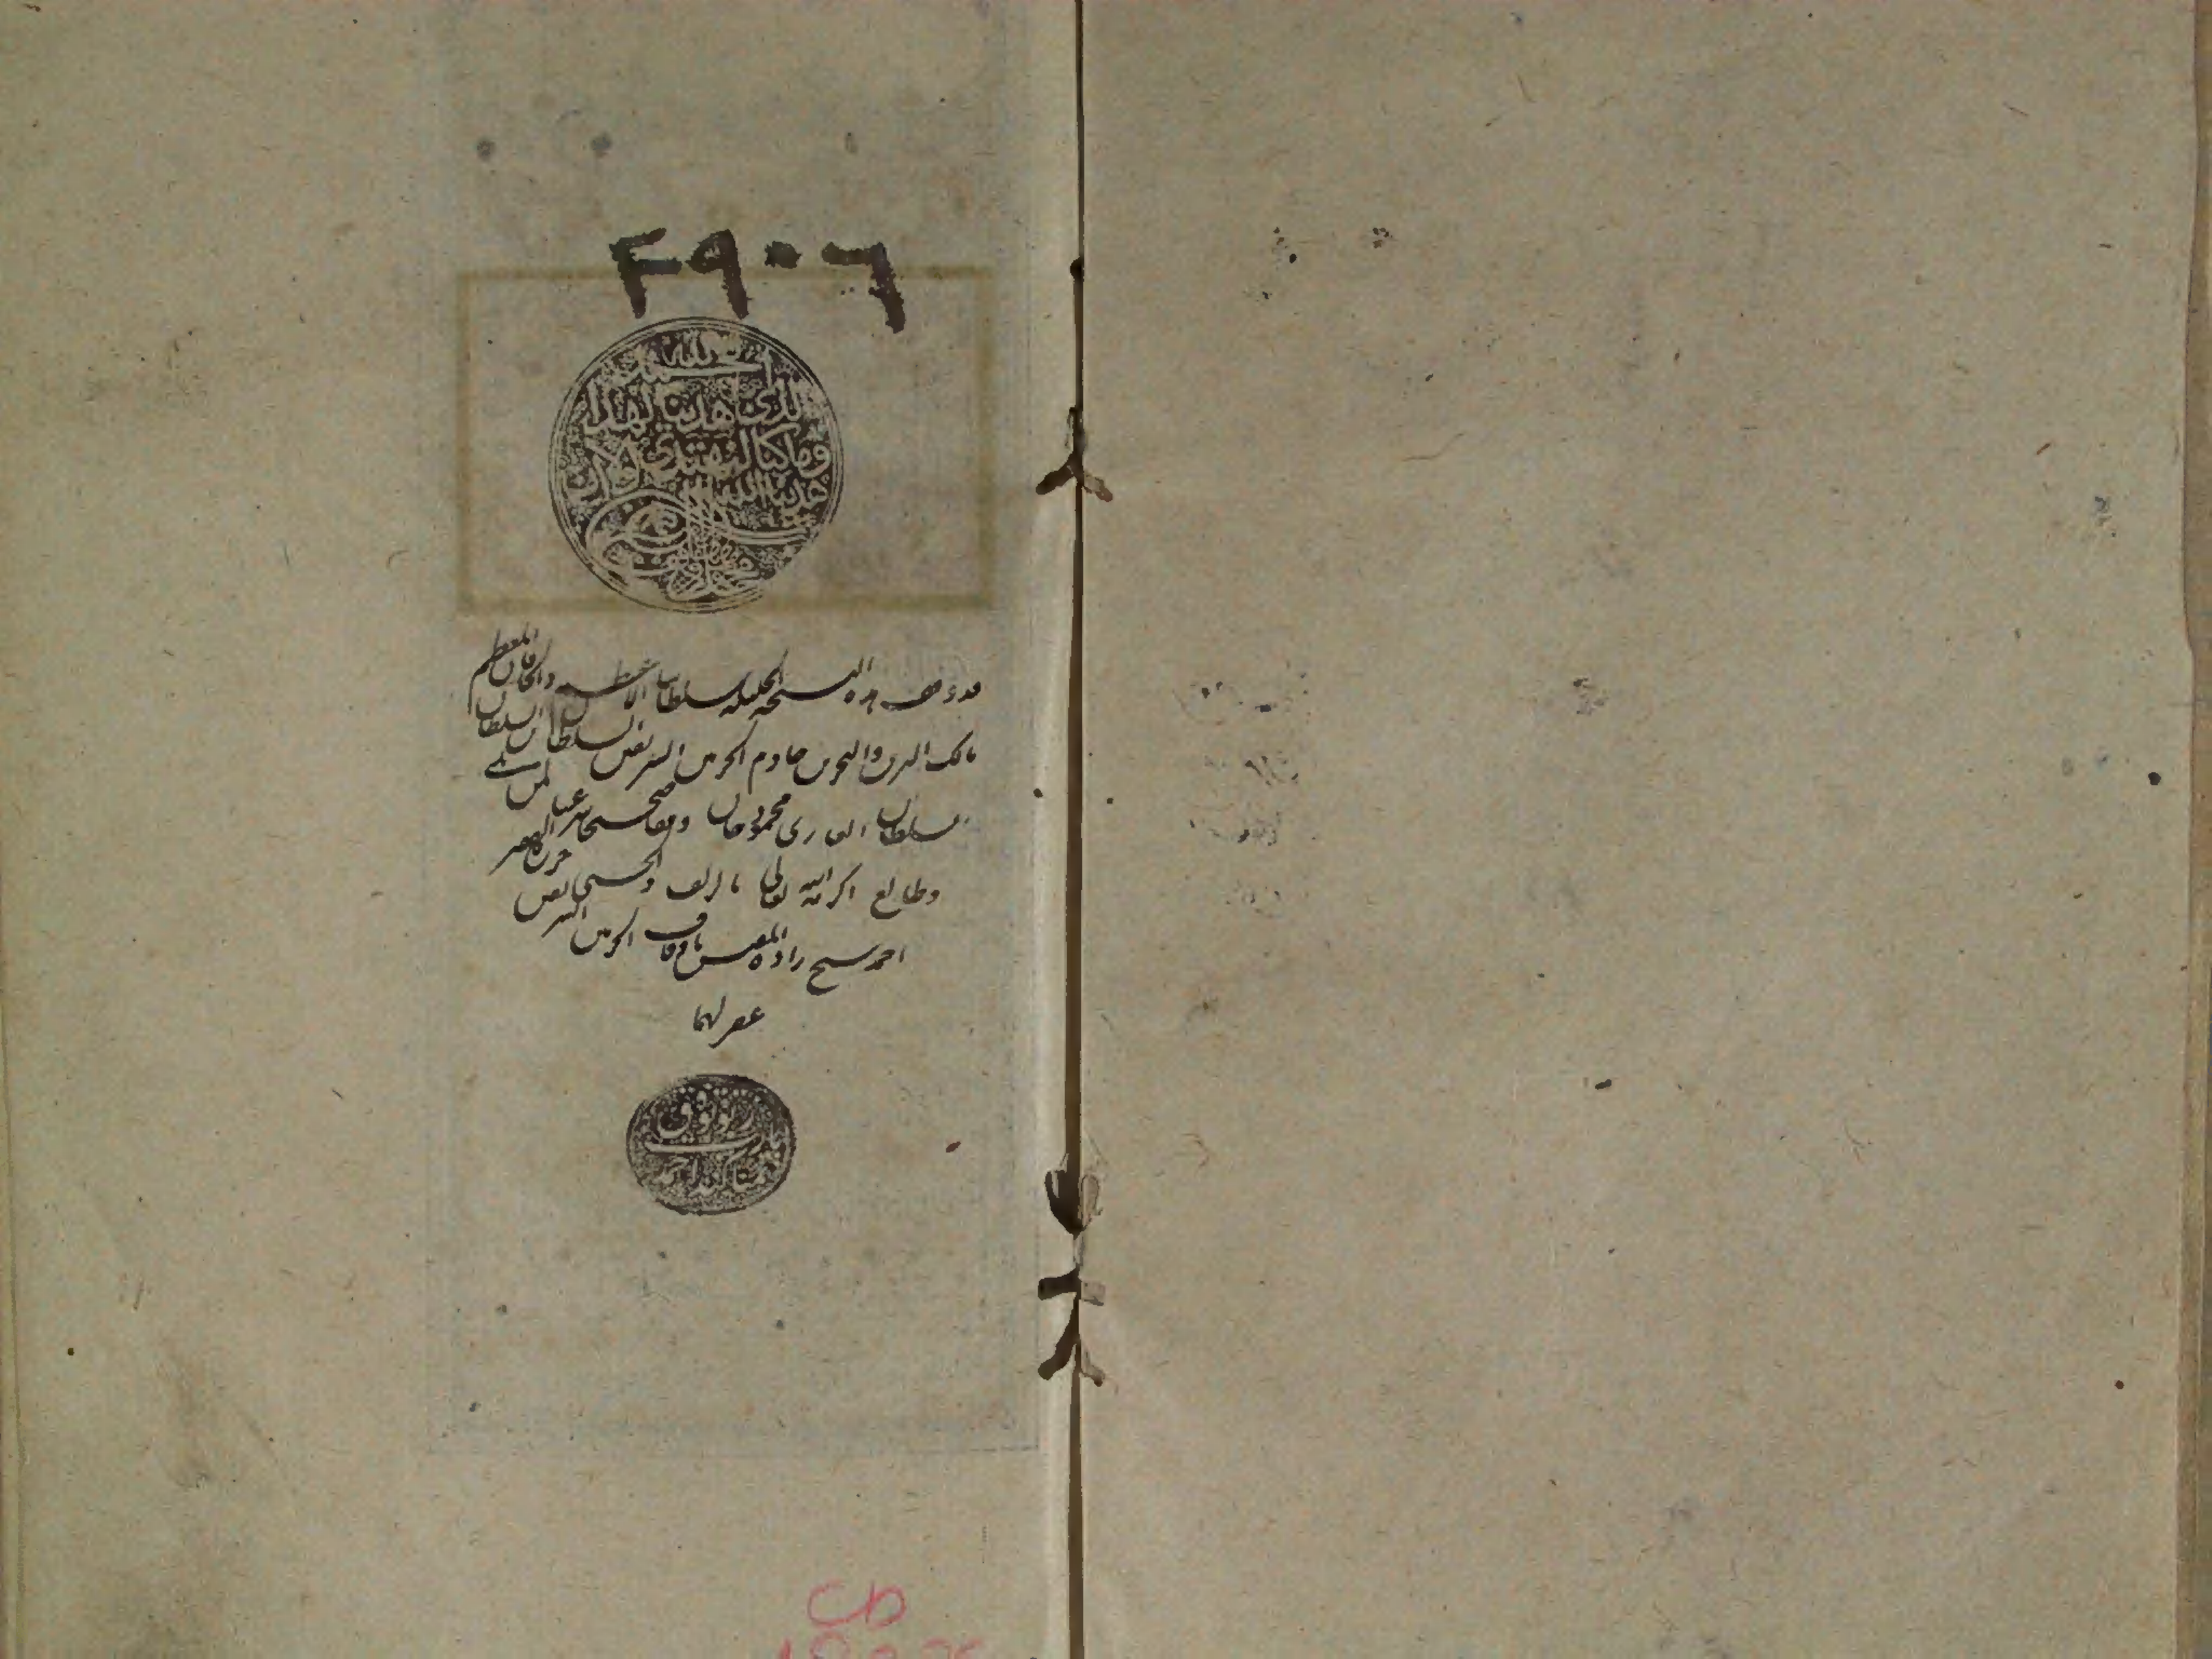 ٣٩٠٦
الحمد لله
الذي هدينا لهذا
وما كنا لنهتدي لولا ان
هدينا الله
قد وقف هذه النسخة الجليلة سلطاننا الاعظم والخاقان المعظم
مالك البرين والبحرين خادم الحرمين الشريفين السلطان بن السلطان
السلطان الغازي محمود خان وقفا صحيحا شرعيا لمن
وطالع اكرمه الله تعالى حرره الفقير
احمد شيخ زاده المفتش باوقاف الحرمين الشريفين
غفر لهما
احمد
CD